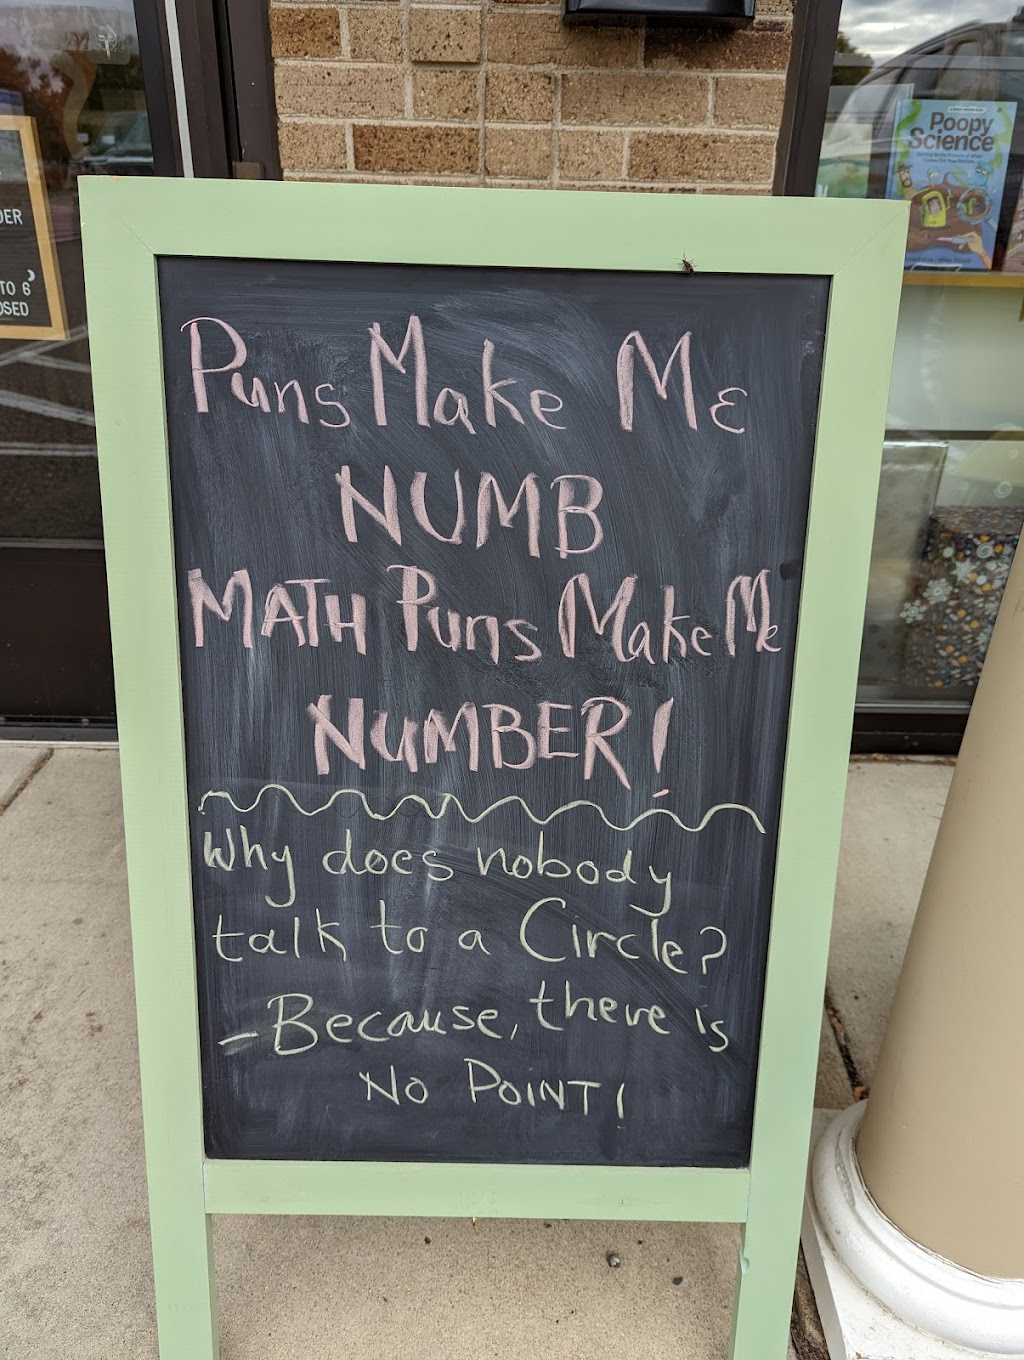 Puns Make Me
NUMB
MATH Puns Make Me
NUMBER!
Why does nobody
talk to a Circle?
- Because, there is
NO POINT!
Poopy
Science
DER
TO 6
OSED